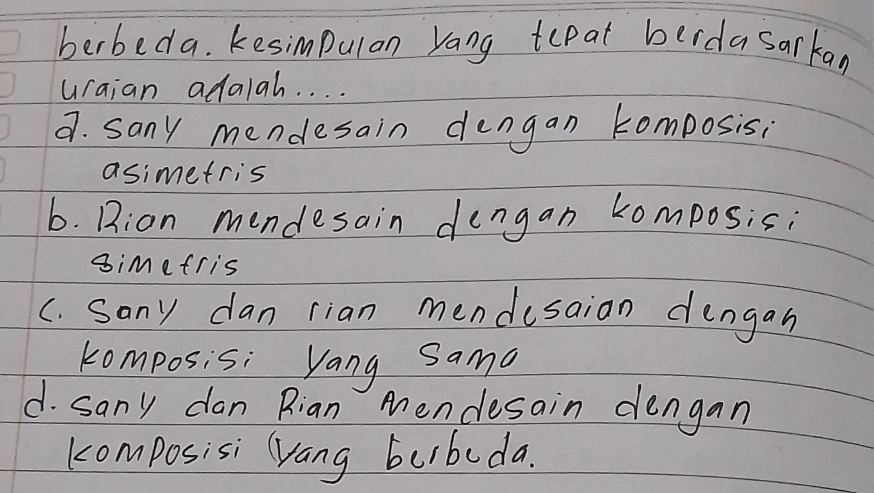 berbeda. kesimpulan yang tepat berdasarkan
uraian adalah....
a. sany mendesain dengan komposisi
asimetris
b. Rian mendesain dengan komposisi
simetris
c. Sany dan rian mendesaian dengan
komposisi yang sama
d. sany dan Rian Mendesain dengan
komposisi yang berbeda.